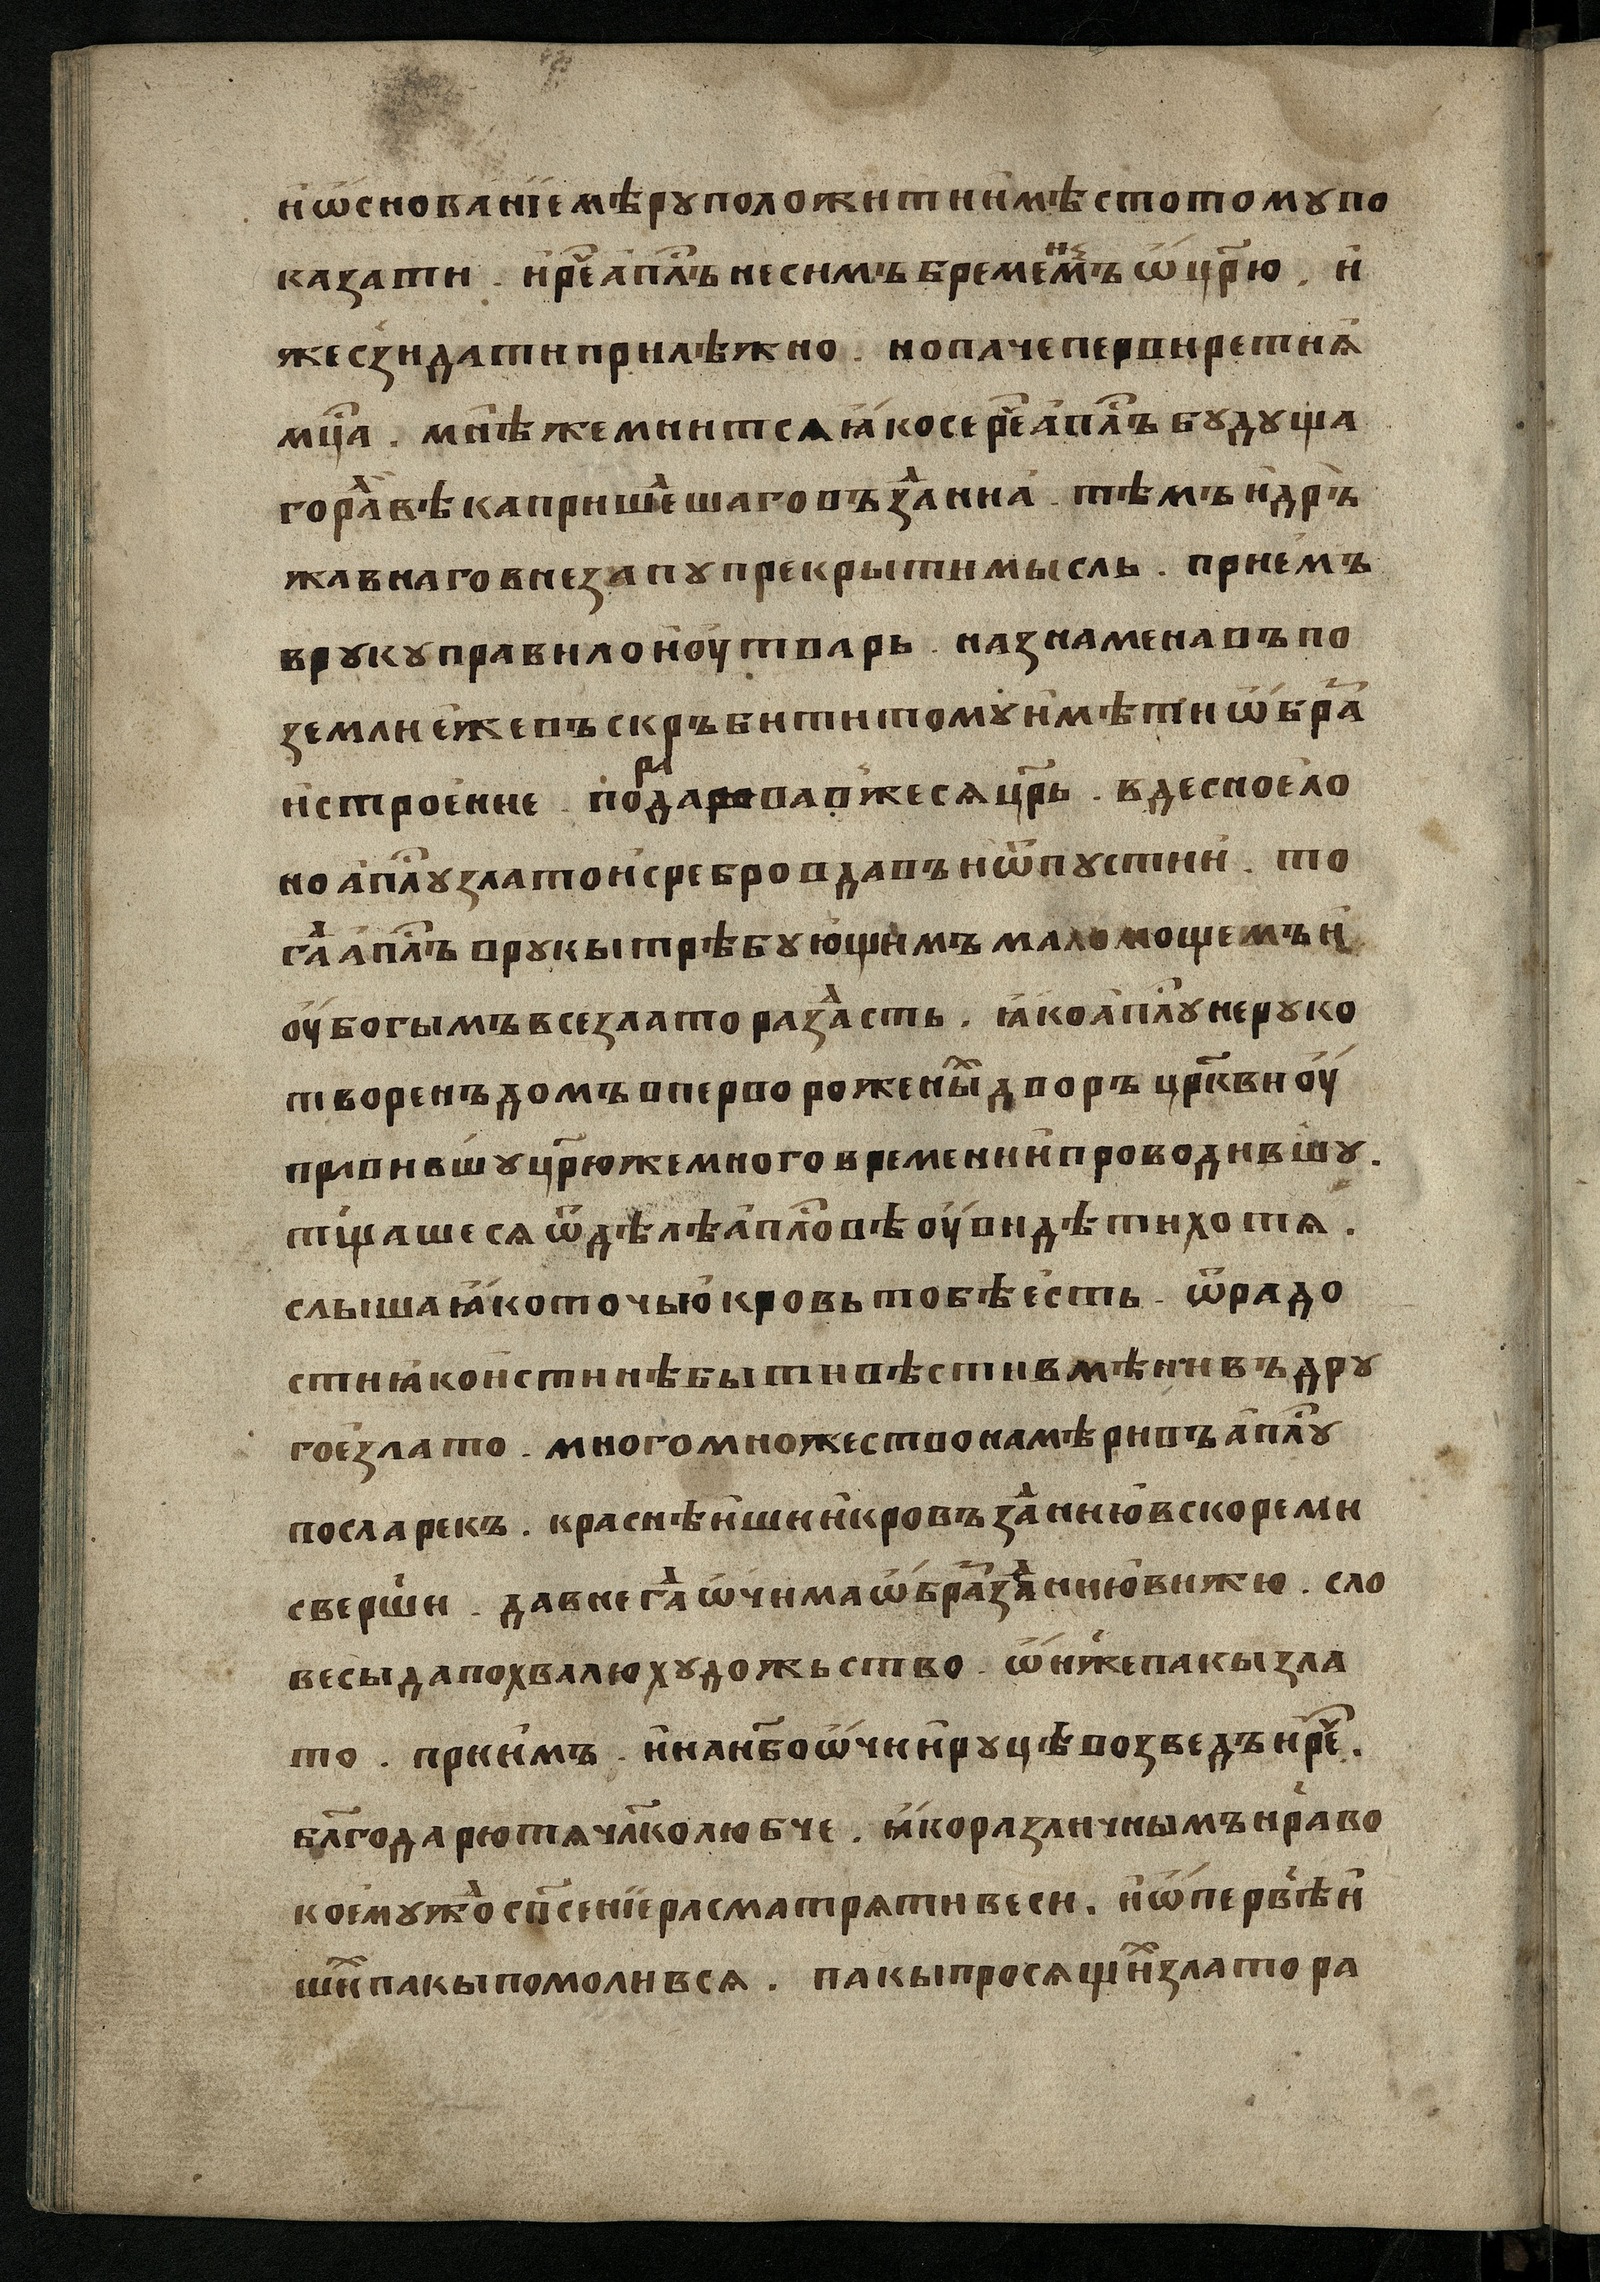 и҆ ѡ҆снова́нїе мѣру положит и҆ и҆ мѣсто тому по
казати . и҆ рⷱ҇е а҆пⷭ҇лъ не симъ бремене́мъ ѡ҆ цр҃ю . и҆
же сз̾идати прилѣжно . но паче перви третиꙗ҆
мцⷭ҇а . мн̾ѣ же мнитсѧ ꙗ҆ко се рⷱ҇е а҆пⷭ҇лъ будуща
го раⷣ вѣка пришеⷣшаго въ зⷣанна҆ . тѣмъ и҆ дръ
жавнаго внезапу прекрыти мысль . прие҆мъ
в руку правило и҆ оу҆тварь . назнаменавъ по
земли е҆же въскръбити тому и҆мѣти ѡ҆браⷥ
и҆ строе҆ние . подароваⷡ҇ же сѧ цр҃ь . в десное҆ ло
но а҆пⷭ҇лу злато и҆ сребро вдавъ и҆ ѿпусти и҆ . то
гⷣа а҆пⷭ҇лъ в рукы трѣбую҆щимъ маломощемъ и҆
оу҆богымъ все злато разⷣасть . ꙗ҆ко а҆пⷭ҇лу неруко
творенъ домъ в первороженыⷯ дворъ црⷦ҇ви оу҆
правившу цр҃ю же много времени и҆ проводившу .
тщашесѧ ѿ дѣлѣ а҆пⷭ҇ловѣ оу҆видѣти хотѧ .
слыша ꙗ҆ко точью҆ кровь тобѣ е҆сть . ѿ радо
сти ꙗ҆ко и҆стинѣ быти вѣсти вмѣнивъ дру
гое҆ злато . много множество намѣривъ а҆пⷭ҇лу
посла рекъ . краснѣи҆ши и҆ кровъ зⷣанию҆ вскоре ми
сверши . да в не гⷣа ѡ҆чима ѡ҆браⷥ зⷣанию҆ вижю . сло
весы да похвалю художьство . ѡ҆ниⷤ же пакы зла
то . прии҆мъ . и҆ на нб҃о ѡ҆чи и҆ руцѣ возведъ и҆ рⷱ҇е .
блг҃одарю тѧ члк҃олюбче . ꙗ҆ко различнымъ нраво
кое҆муж̾ⷣо сп҃сенїе расматрѧти веси . и҆ ѡ҆ первѣи҆
шиⷯ пакы помоливсѧ . пакы просѧщиⷯ злато ра